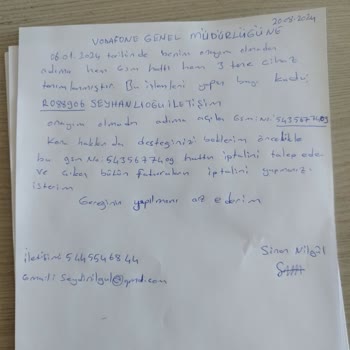 20.08.2024
VODAFONE GENEL MÜDÜRLÜĞÜNE
06.01.2024 tarihinde benim onayım olmadan
adıma hem Gsm hattı hem 3 tane cihaz
tanımlanmıştır. Bu işlemleri yapan bayi kodu
R088906 SEYHANLIOĞU İLETİŞİM
onayım olmadan adıma açılan Gsm no: 5435677409
Konu hakkında desteğinizi beklerim öncelikle
bu gsm No: 5435677409 hattın iptalini talep eder
ve çıkan bütün faturaların iptalini yapmanızı
isterim
Gereğinin yapılmasını arz ederim
iletişim 5445546844
Sinan Nilgül
Gmail: